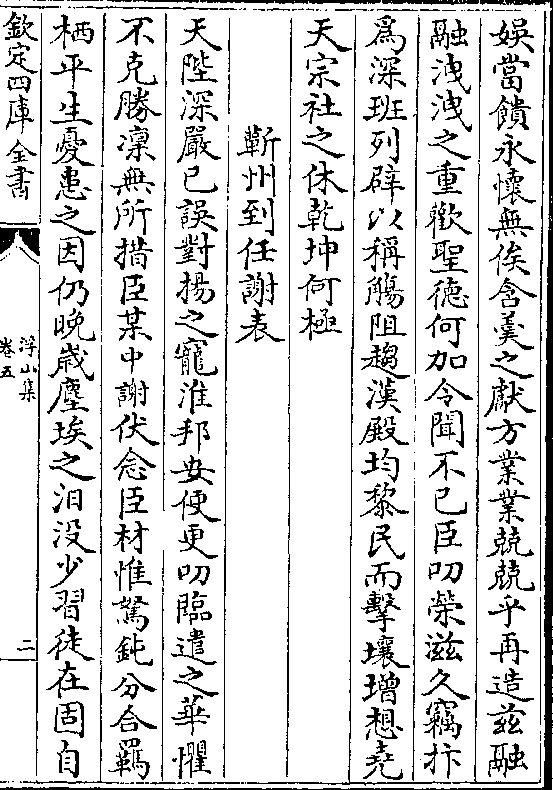 娯當饋永懷無俟含羮之獻方業業兢兢乎再造兹融
融洩洩之重歡聖德何加令聞不已臣叨榮滋久竊抃
爲深班列辟以稱觴阻趨漢殿均黎民而擊壤增想堯
天宗社之休乾坤何極
蘄州到任謝表
天陛深嚴已誤對揚之寵淮邦安便更叨臨遣之華懼
不克勝凜無所措臣某中謝伏念臣材惟駑鈍分合羈
栖平生憂患之因仍晚歲塵埃之汨没少習徒在固自
欽定四庫全書
浮山集
卷五
二